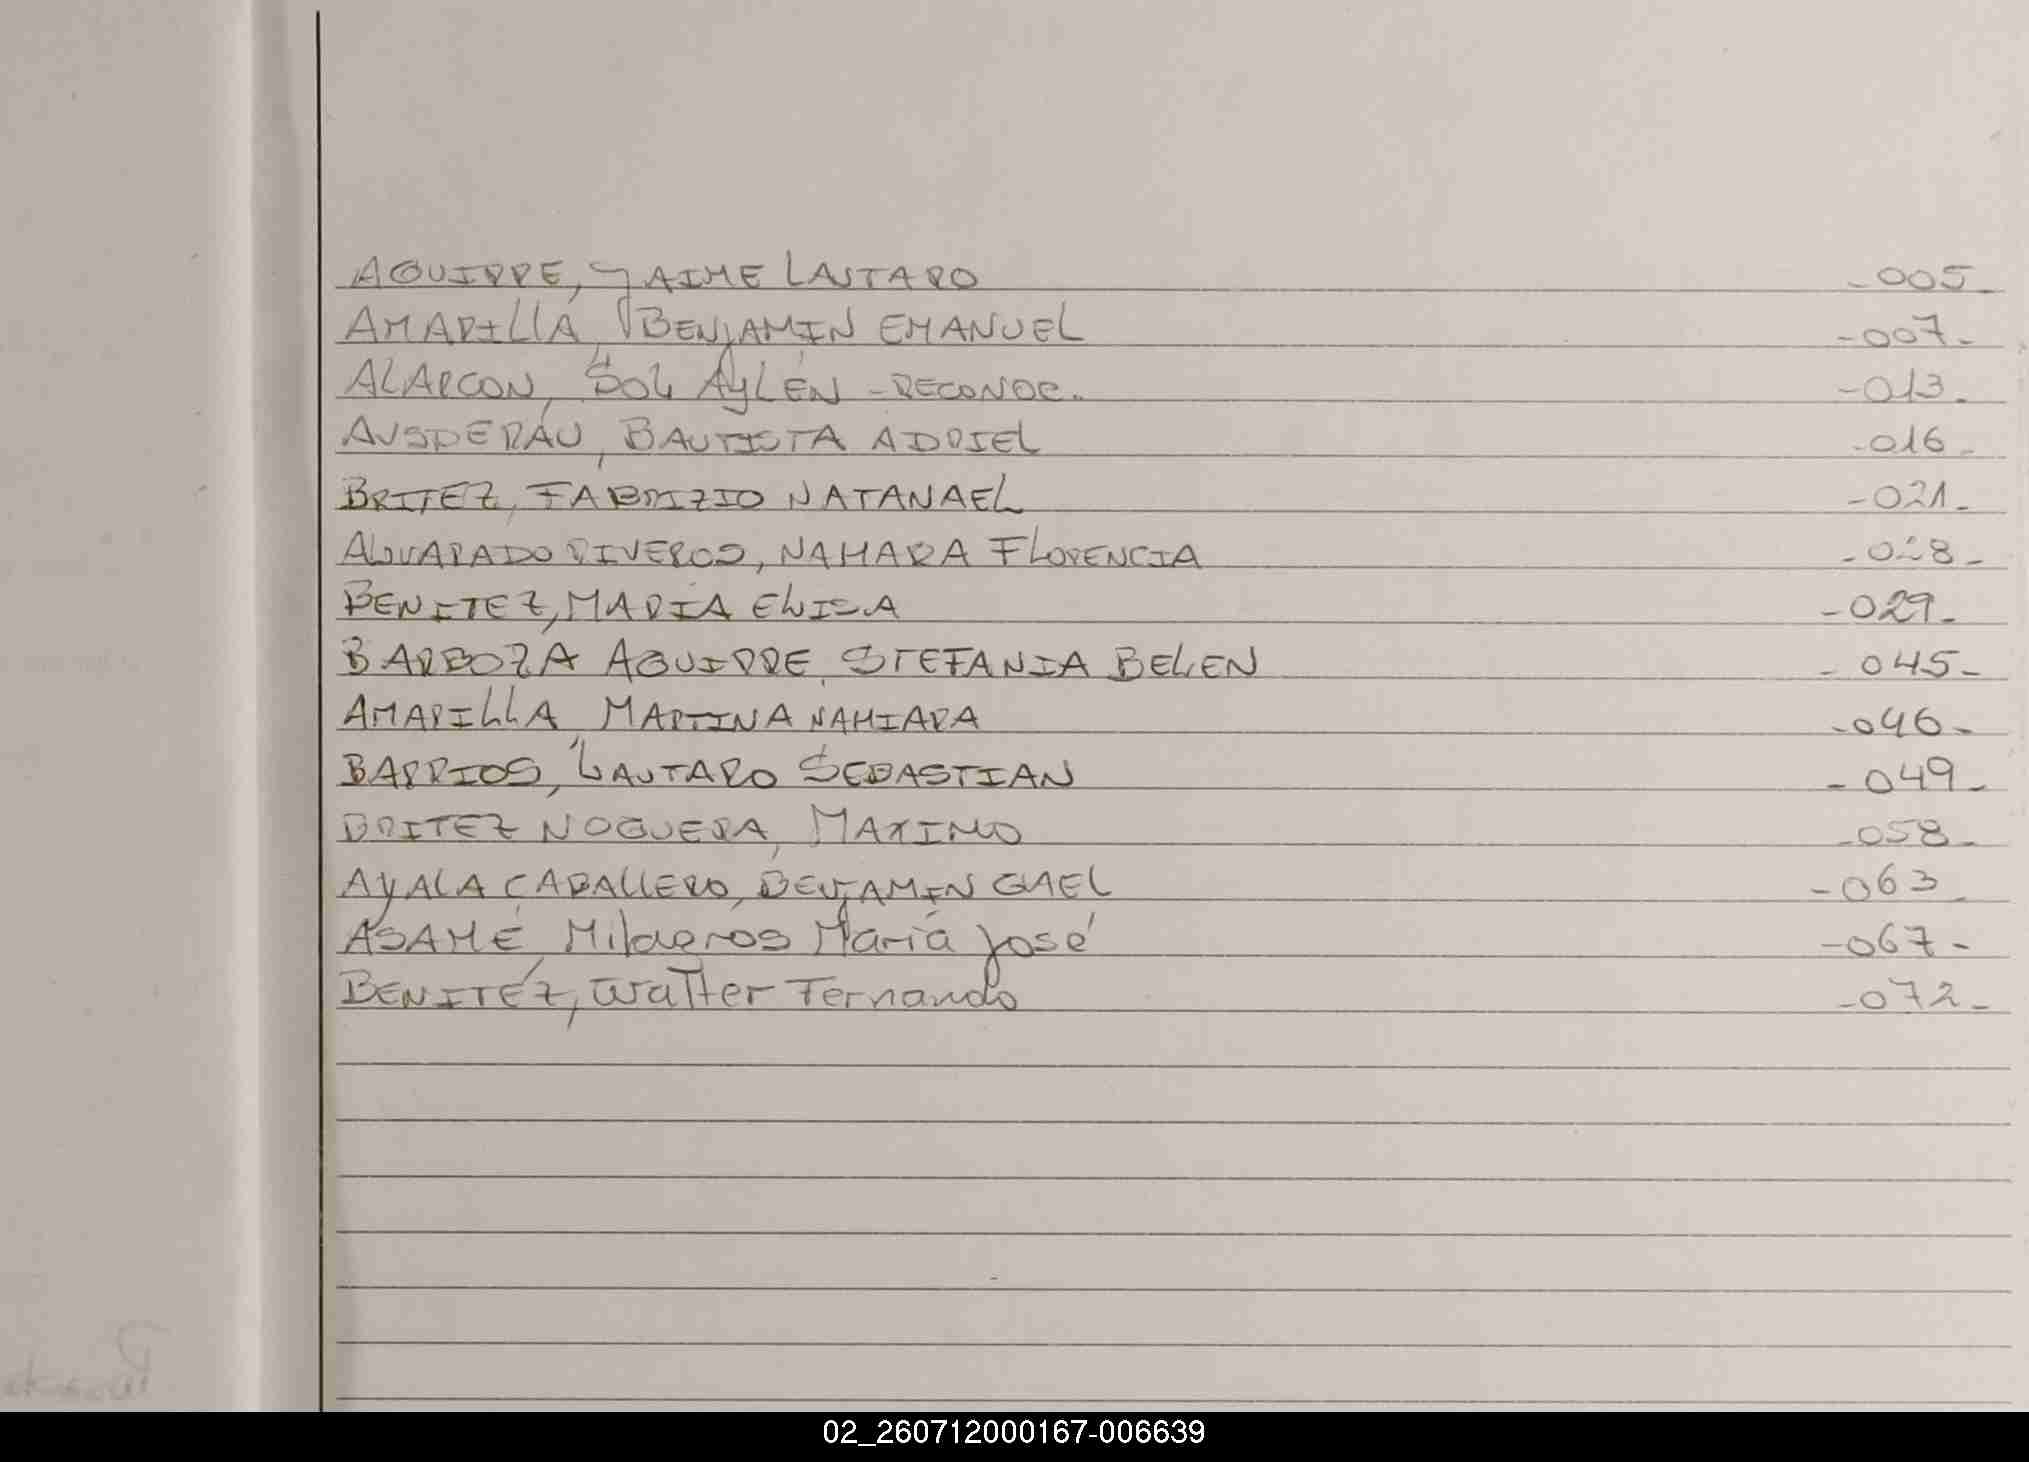 AGUIRRE, JAIME LAUTARO -005-
AMARILLA, BENJAMIN EMANUEL -007-
ALARCON, SOL AYLÉN -RECONOC. -013-
AUSDERAU, BAUTISTA ADRIEL -016-
BRITEZ, FABRIZIO NATANAEL -021-
ALVARADO RIVEROS, NAHARA FLORENCIA -028-
BENITEZ, MARÍA ELISA -029-
BARBOZA AGUIRRE, STEFANIA BELEN -045-
AMARILLA, MARTINA NAHIARA -046-
BARRIOS, LAUTARO SEBASTIAN -049-
BRITEZ NOGUERA, MAXIMO -058-
AYALA CABALLERO, BENJAMIN GAEL -063-
ASAMÉ, Milagros María José -067-
BENITÉZ, Walter Fernando -072-
02_260712000167-006639